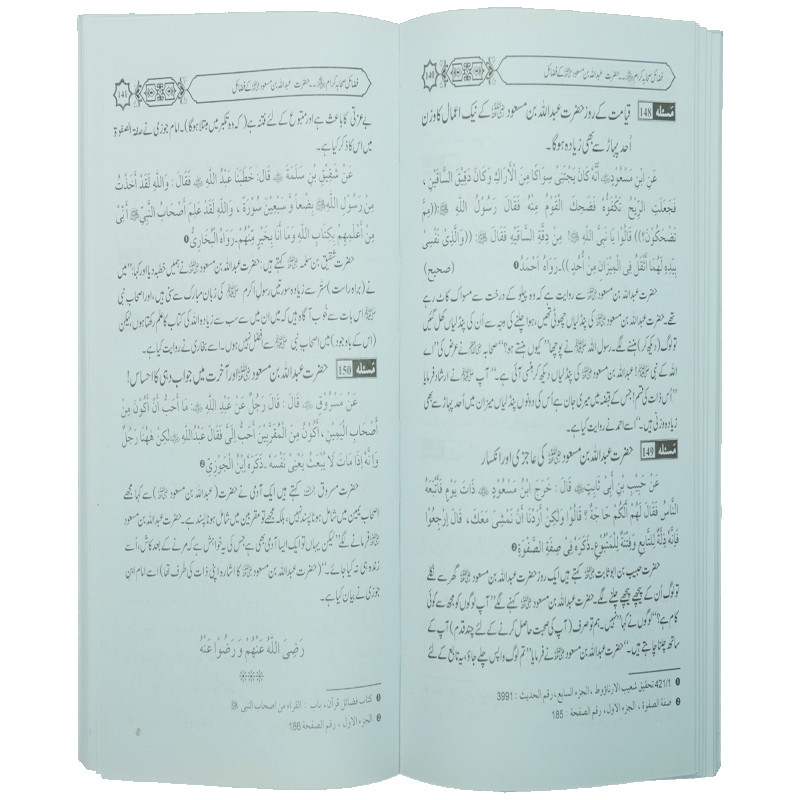 فضائل صحابہ کرام ﷢ ... حضرت عبداللہ بن مسعود ﷜ کے فضائل
مسئلہ 148 قیامت کے روز حضرت عبداللہ بن مسعود ﷜ کے نیک اعمال کا وزن
اُحد پہاڑ سے بھی زیادہ ہوگا۔
عَنِ ابْنِ مَسْعُودٍ ﷜ أَنَّهُ كَانَ يَجْتَنِي سِوَاكًا مِنَ الْأَرَاكِ وَكَانَ دَقِيقَ السَّاقَيْنِ ،
فَجَعَلَتِ الرِّيْحُ تَكْفَؤُهُ فَضَحِكَ الْقَوْمُ مِنْهُ فَقَالَ رَسُولُ اللَّهِ ﷺ ((مِمَّ
تَضْحَكُونَ؟)) قَالُوا يَا نَبِيَّ اللَّهِ! مِنْ دِقَّةِ السَّاقَيْهِ فَقَالَ ﷺ: ((وَالَّذِي نَفْسِي
بِيَدِهِ لَهُمَا أَثْقَلُ فِي الْمِيزَانِ مِنْ أُحُدٍ)). رَوَاهُ أَحْمَدُ❶ (صحيح)
حضرت عبداللہ بن مسعود ﷜ سے روایت ہے کہ وہ پیلو کے درخت سے مسواک کاٹ رہے
تھے۔ حضرت عبداللہ بن مسعود ﷜ کی پنڈلیاں چھوٹی تھیں، ہوا چلنے کی وجہ سے اُن کی پنڈلیاں کھل گئیں
تو لوگ (دیکھ کر) ہنسنے لگے۔ رسول اللہ ﷺ نے پوچھا ”کیوں ہنستے ہو؟“ صحابہ نے عرض کی ”اے
اللہ کے نبی ﷺ! ان کی پتلی پنڈلیاں دیکھ کر ہنسی آئی ہے۔“ آپ ﷺ نے ارشاد فرمایا
”اُس ذات کی قسم! جس کے قبضہ میں میری جان ہے اُس کی دونوں پنڈلیاں میزان میں اُحد پہاڑ سے بھی
زیادہ وزنی ہیں۔“ اسے احمد نے روایت کیا ہے۔
مسئلہ 149 حضرت عبداللہ بن مسعود ﷜ کی عاجزی اور انکسار
عَنْ حَبِيْبِ بْنِ أَبِي ثَابِتٍ ﷫ قَالَ : خَرَجَ ابْنُ مَسْعُودٍ ﷜ ذَاتَ يَوْمٍ فَاتَّبَعَهُ
النَّاسُ فَقَالَ لَهُمْ أَلَكُمْ حَاجَةٌ؟ قَالُوا وَلَكِنْ أَرَدْنَا أَنْ نَمْشِيَ مَعَكَ ، قَالَ ارْجِعُوا
فَإِنَّهُ ذِلَّةٌ لِلتَّابِعِ وَفِتْنَةٌ لِلْمَتْبُوعِ. ذَكَرَهُ فِي صِفَةِ الصَّفْوَةِ❷
حضرت حبیب بن ابو ثابت ﷫ کہتے ہیں ایک روز حضرت عبداللہ بن مسعود ﷜ گھر سے نکلے
تو لوگ اُن کے پیچھے پیچھے چلنے لگے۔ حضرت عبداللہ بن مسعود ﷜ کہنے لگے ”آپ لوگوں کو مجھ سے کوئی
کام ہے؟“ لوگوں نے کہا ”نہیں۔ ہم تو صرف (آپ کی صحبت حاصل کرنے کے لئے چند قدم) آپ کے
ساتھ چلنا چاہتے ہیں۔“ حضرت عبداللہ بن مسعود ﷜ نے فرمایا ”تم لوگ واپس چلے جاؤ، یہ تابع کے لئے
❶ 421/1 تحقیق شعیب الارناؤوط ، الجزء السابع ، رقم الحدیث : 3991
❷ صفة الصفوة ، الجزء الاول ، رقم الصفحة : 185
141 فضائل صحابہ کرام ﷢ ... حضرت عبداللہ بن مسعود ﷜ کے فضائل
بے عزتی کا باعث ہے اور متبوع کے لئے فتنہ ہے (کہ وہ تکبر میں مبتلا ہوگا)۔ امام جوزی نے صفة الصفوة
میں اس کا ذکر کیا ہے۔
عَنْ شَقِيقِ بْنِ سَلَمَةَ ﷫ قَالَ: خَطَبَنَا عَبْدُ اللَّهِ ﷜ فَقَالَ : وَاللَّهِ لَقَدْ أَخَذْتُ
مِنْ رَسُولِ اللَّهِ ﷺ بِضْعًا وَّ سَبْعِينَ سُوْرَةً ، وَاللَّهِ لَقَدْ عَلِمَ أَصْحَابُ النَّبِيِّ ﷺ أَنِّي
مِنْ أَعْلَمِهِمْ بِكِتَابِ اللَّهِ وَمَا أَنَا بِخَيْرِهِمْ. رَوَاهُ الْبُخَارِيُّ❶
حضرت شقیق بن سلمہ ﷫ کہتے ہیں: حضرت عبداللہ بن مسعود ﷜ نے ہمیں خطبہ دیا اور کہا ”میں
نے (براہ راست) ستر سے زیادہ سورتیں رسول اکرم ﷺ کی زبان مبارک سے سنی ہیں، اور اصحاب نبی
ﷺ اس بات سے خوب آگاہ ہیں کہ میں ان میں سے سب سے زیادہ اللہ کی کتاب کا علم رکھتا ہوں لیکن
(اس کے باوجود) میں اصحاب نبی ﷺ سے افضل نہیں ہوں۔ اسے بخاری نے روایت کیا ہے۔
مسئلہ 150 حضرت عبداللہ بن مسعود ﷜ اور آخرت میں جواب دہی کا احساس!
عَنْ مَسْرُوقٍ ﷫ قَالَ : قَالَ رَجُلٌ عَنْ عَبْدِ اللَّهِ ﷜: مَا أُحِبُّ أَنْ أَكُوْنَ مِنْ
أَصْحَابِ الْيَمِيْنِ ، أَكُوْنُ مِنَ الْمُقَرَّبِيْنَ أَحَبُّ إِلَيَّ فَقَالَ عَبْدُ اللَّهِ ﷜ لَكِنْ هَهُنَا رَجُلٌ
وَأَنَّهُ إِذَا مَاتَ لَا يُبْعَثُ يَعْنِي نَفْسَهُ. ذَكَرَهُ ابْنُ الْجَوْزِيِّ❷
حضرت مسروق ﷫ کہتے ہیں ایک آدمی نے حضرت (عبداللہ بن مسعود ﷜) سے کہا مجھے
اصحاب یمین میں شامل ہونا پسند نہیں، بلکہ مجھے تو مقربین میں شامل ہونا پسند ہے۔ حضرت عبداللہ بن مسعود
﷜ فرمانے لگے ”لیکن یہاں تو ایک ایسا آدمی بھی ہے جس کی یہ خواہش ہے کہ مرنے کے بعد کاش، اُسے
زندہ ہی نہ کیا جائے۔“ (حضرت عبداللہ بن مسعود ﷜ کا اشارہ اپنی ذات کی طرف تھا) اسے امام ابن
جوزی نے بیان کیا ہے۔
رَضِيَ اللَّهُ عَنْهُمْ وَ رَضُوْا عَنْهُ
❶ کتاب فضائل قرآن ، باب : القراء من اصحاب النبی ﷺ
❷ الجزء الاول ، رقم الصفحة 188